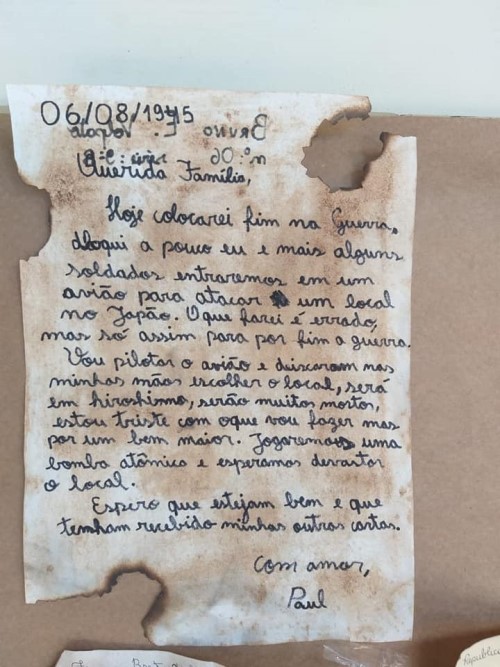 06/08/1945
Bruno E. Volpato
nº: 06
Querida Família,
Hoje colocarei fim na Guerra,
daqui a pouco eu e mais alguns
soldados entraremos em um
avião para atacar um local
no Japão. O que farei é errado,
mas só assim para por fim a guerra.
Vou pilotar o avião e deixaram nas
minhas mãos escolher o local, será
em hiroshima, serão muitos mortos,
estou triste com oque vou fazer mas
por um bem maior. Jogaremos uma
bomba atômica e esperamos devastar
o local.
Espero que estejam bem e que
tenham recebido minhas outras cartas.
Com amor,
Paul